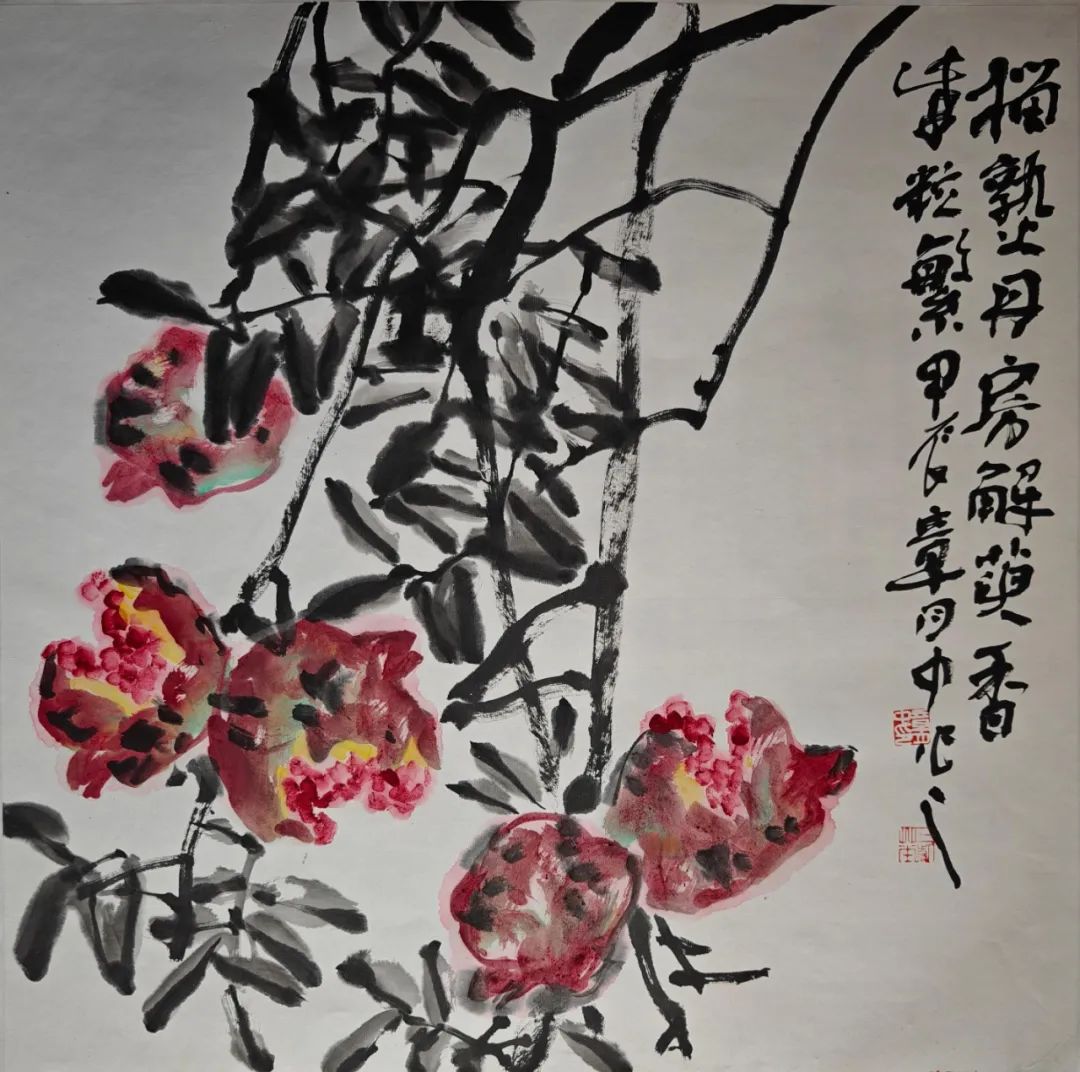 榴熟丹房解萸香
粒繁甲辰章月中